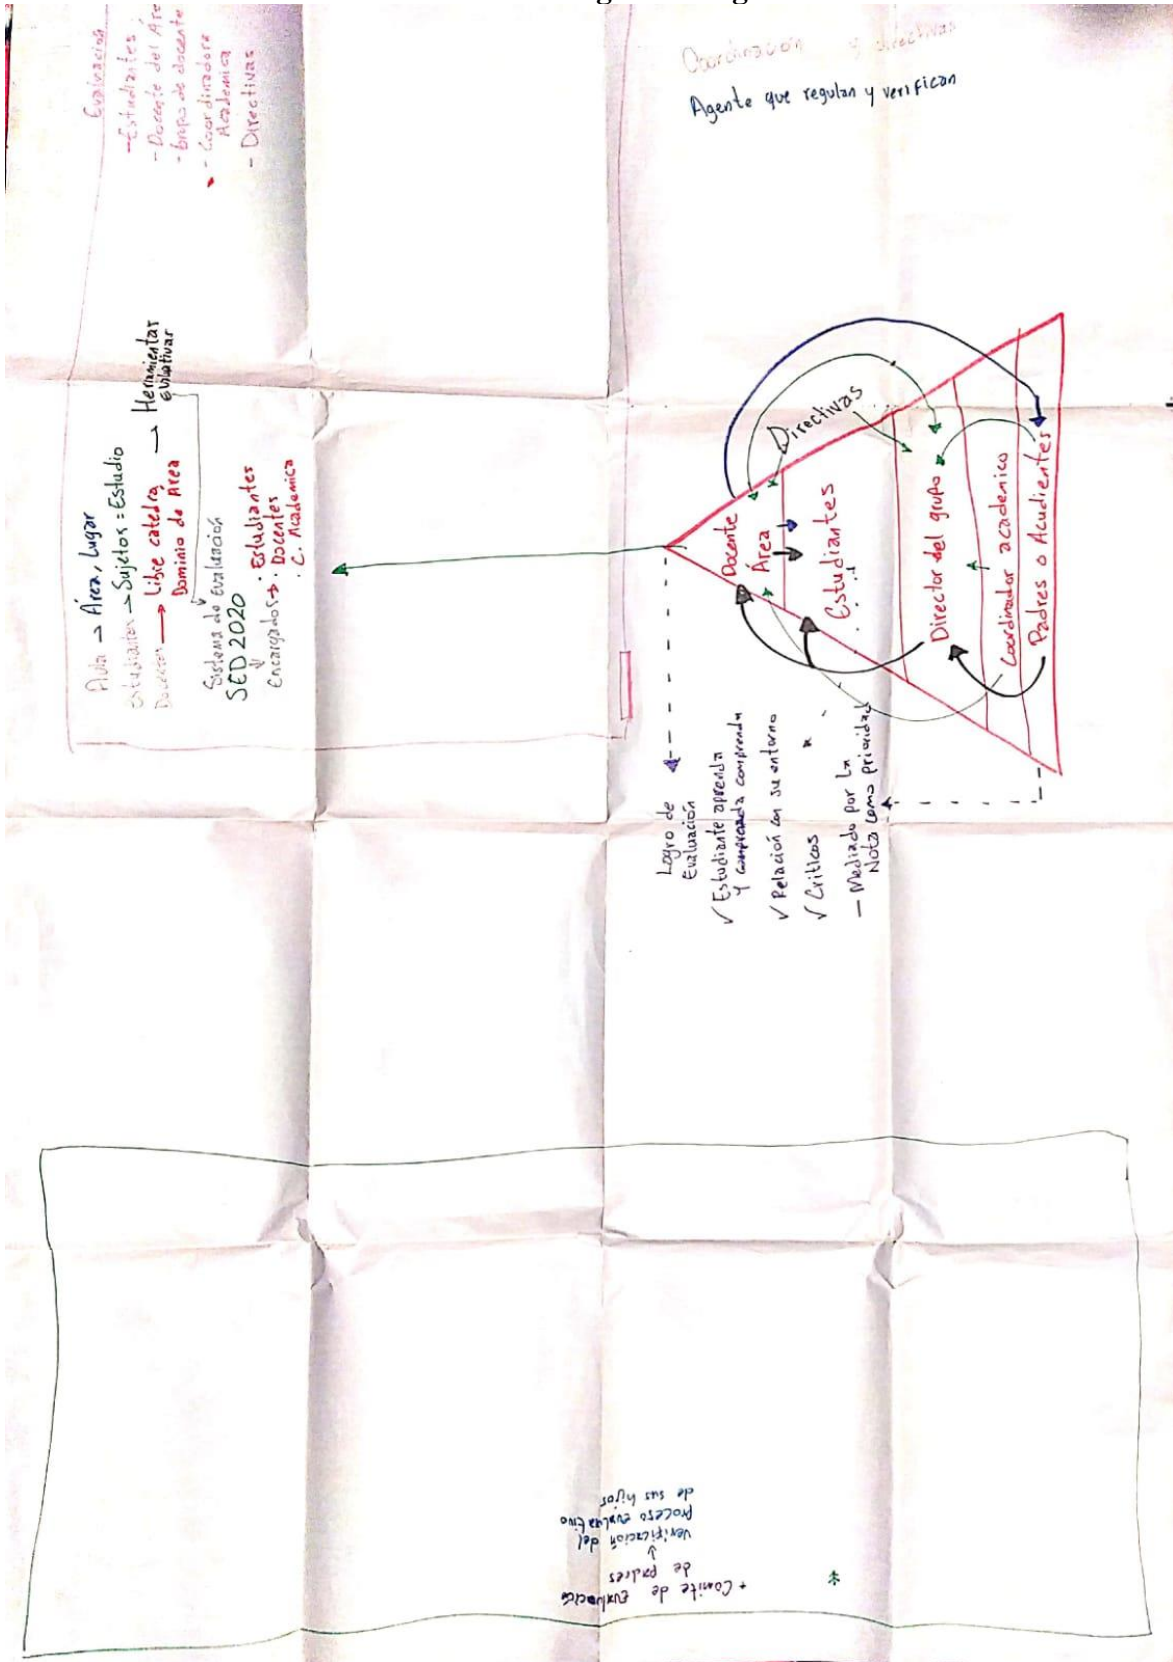 Evaluación
- Estudiantes
- Docente del Área
- Grupo de docente
- Coordinadora
Academica
- Directivas
Coordinación y directivas
Agente que regulan y verifican
Aula → Área, Lugar
estudiantes → Sujetos = Estudio
Docentes → Libre catedra, → Herramientar
Evaluativar
Dominio de Área
Sistema de evaluación
SED 2020
Encargados → · Estudiantes
· Docentes
· C. Academica
Directivas
Docente
Área
Estudiantes
Director del grupo
Coordinador academico
Padres o Acudientes
Logro de
Evaluación
✓ Estudiante aprenda
y comprenda comprenda
✓ Relación con su entorno
✓ Criticos
- Mediado por La
Nota como prioridad
+ Comite de evaluación
de padres
↓
verificación del
proceso evaluativo
de sus hijos